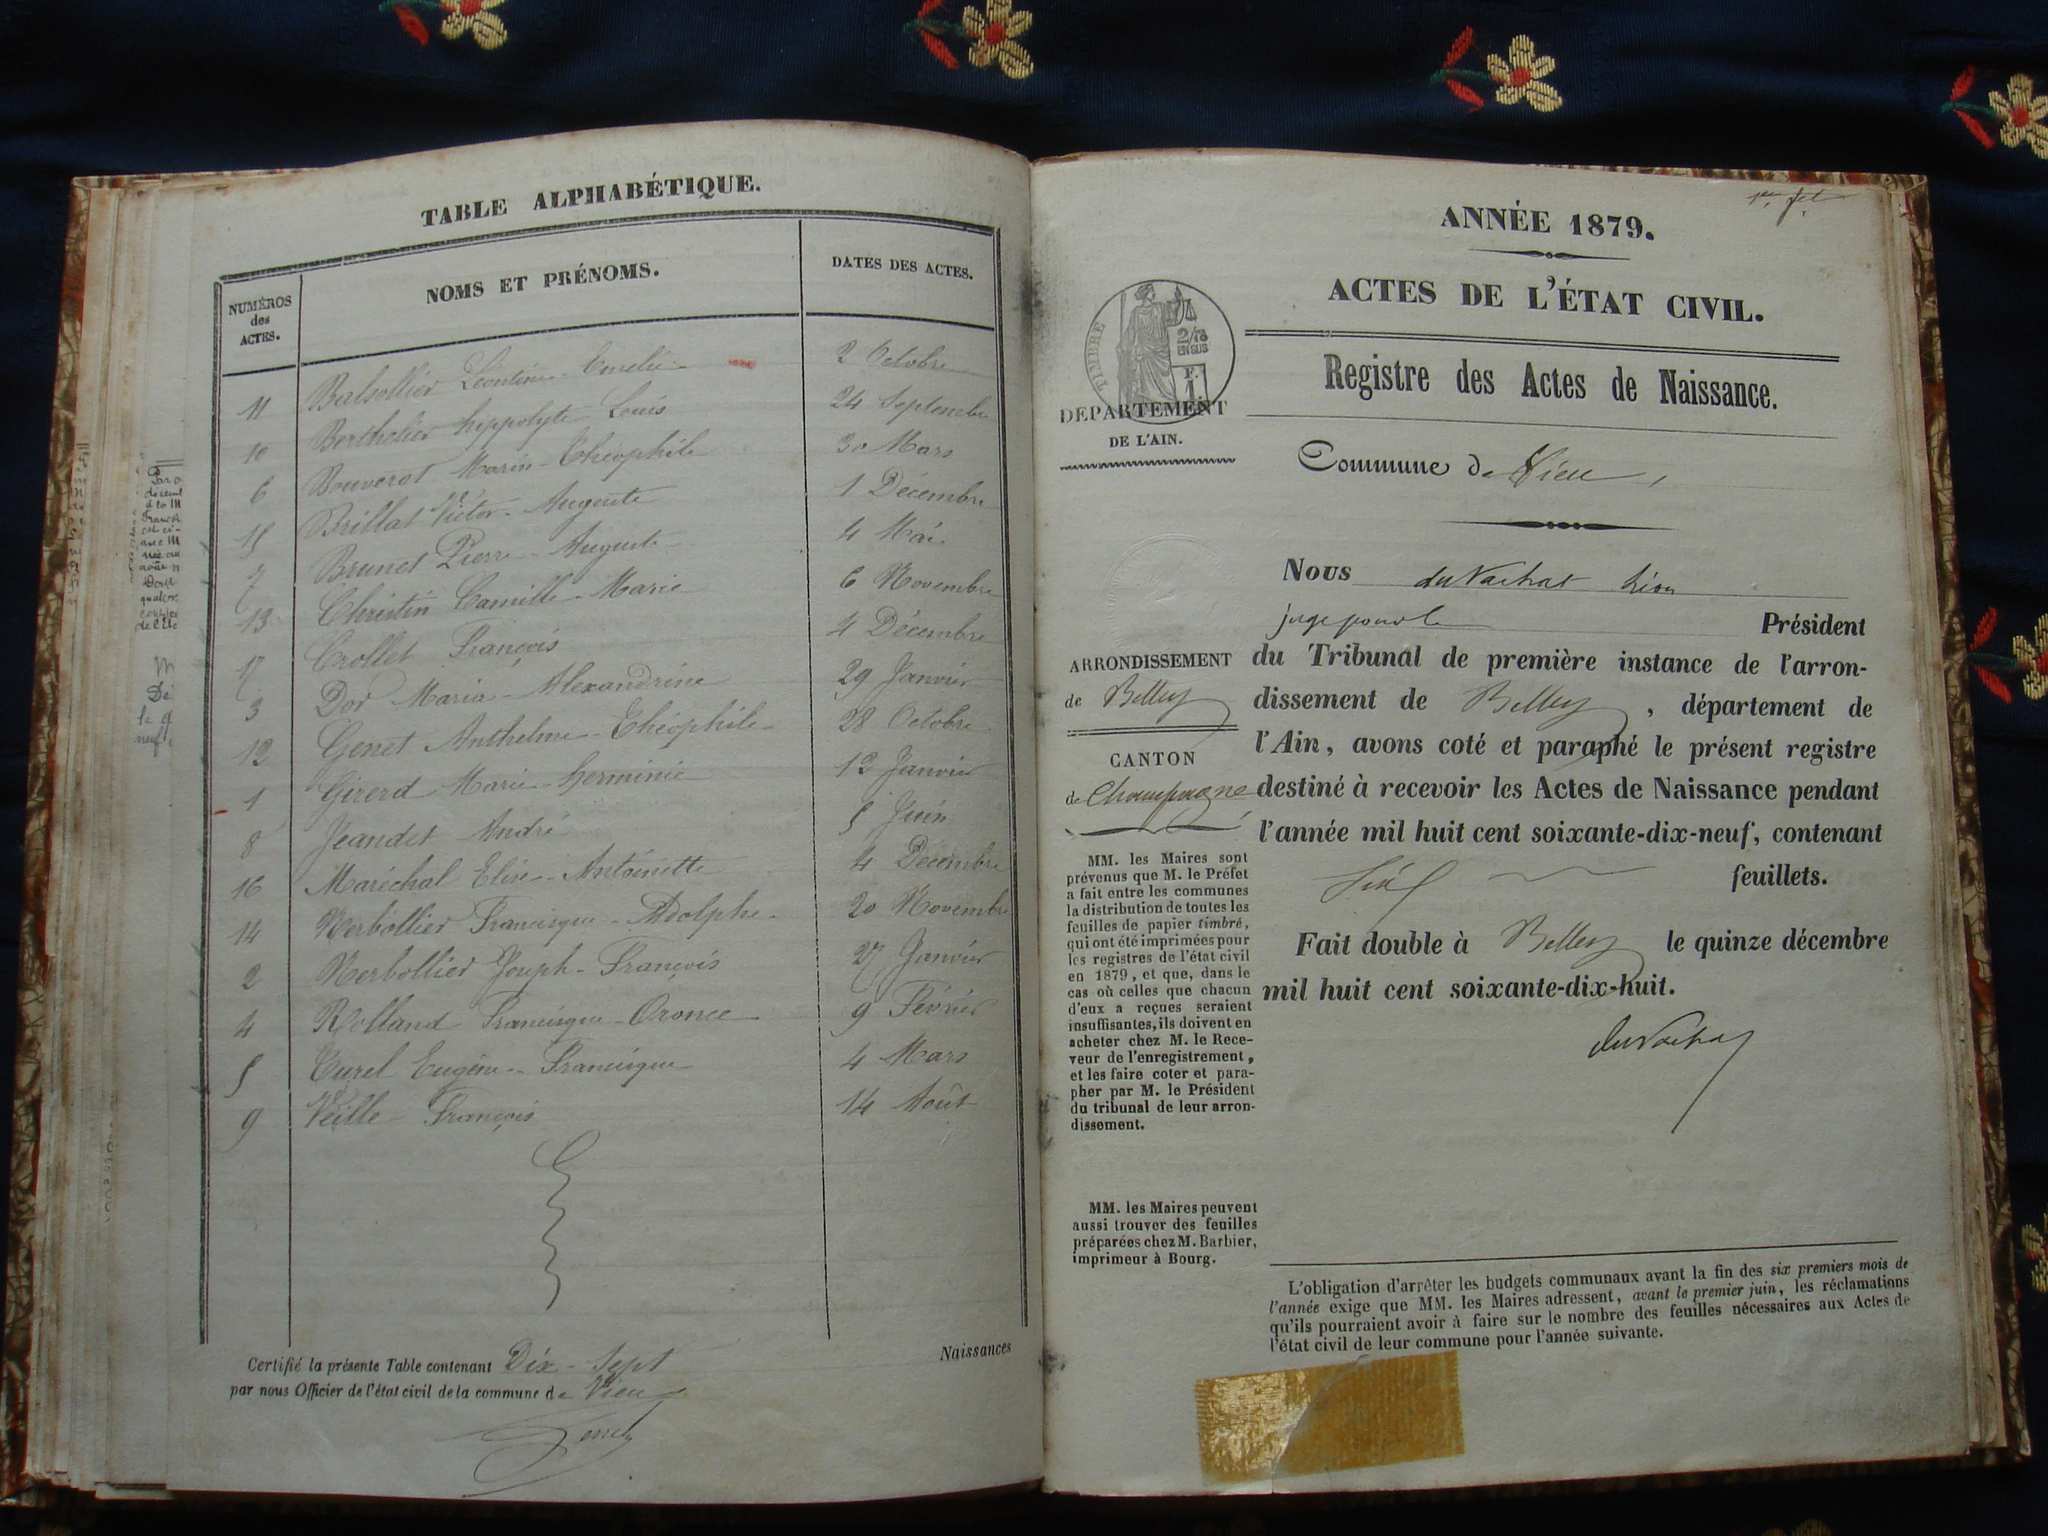 TABLE ALPHABÉTIQUE.
NUMÉROS des ACTES.
NOMS ET PRÉNOMS.
DATES DES ACTES.
11 Balsollier Léontine-Emelie 2 Octobre
10 Bertholier hippolyte Louis 24 Septembre
6 Bouverot Marin-Théophile 30 Mars
15 Brillat Victor-Auguste 1 Décembre
7 Brunet Pierre-Auguste 4 Mai
13 Christin Camille-Marie 6 Novembre
17 Crollet François 4 Décembre
3 Dor Maria-Alexandrine 29 Janvier
12 Genet Anthelme-Théophile 28 Octobre
1 Girerd Marie-herminie 12 Janvier
8 Jeandet André 5 Juin
16 Maréchal Elise-Antoinette 4 Décembre
14 Nerbollier Francisque-Adolphe 20 Novembre
2 Nerbollier Joseph-François 27 Janvier
4 Rolland Francisque-Oronce 9 Février
5 Turel Eugène-Francisque 4 Mars
9 Veille François 14 Août
Certifié la présente Table contenant Dix-Sept Naissances
par nous Officier de l'état civil de la commune de Vieu
1er f.et
ANNÉE 1879.
ACTES DE L'ÉTAT CIVIL.
TIMBRE
2/10 EN SUS
Registre des Actes de Naissance.
DÉPARTEMENT
DE L'AIN.
Commune de Vieu,
Nous du Vachat Léon
juge pour le Président
ARRONDISSEMENT
de Belley
CANTON
de Champagne
du Tribunal de première instance de l'arron-
dissement de Belley, département de
l'Ain, avons coté et paraphé le présent registre
destiné à recevoir les Actes de Naissance pendant
l'année mil huit cent soixante-dix-neuf, contenant
feuillets.
Fait double à Belley le quinze décembre
mil huit cent soixante-dix-huit.
du Vachat
MM. les Maires sont
prévenus que M. le Préfet
a fait entre les communes
la distribution de toutes les
feuilles de papier timbré,
qui ont été imprimées pour
les registres de l'état civil
en 1879, et que, dans le
cas où celles que chacun
d'eux a reçues seraient
insuffisantes, ils doivent en
acheter chez M. le Rece-
veur de l'enregistrement,
et les faire coter et para-
pher par M. le Président
du tribunal de leur arron-
dissement.
MM. les Maires peuvent
aussi trouver des feuilles
préparées chez M. Barbier,
imprimeur à Bourg.
L'obligation d'arrêter les budgets communaux avant la fin des six premiers mois de
l'année exige que MM. les Maires adressent, avant le premier juin, les réclamations
qu'ils pourraient avoir à faire sur le nombre des feuilles nécessaires aux Actes de
l'état civil de leur commune pour l'année suivante.